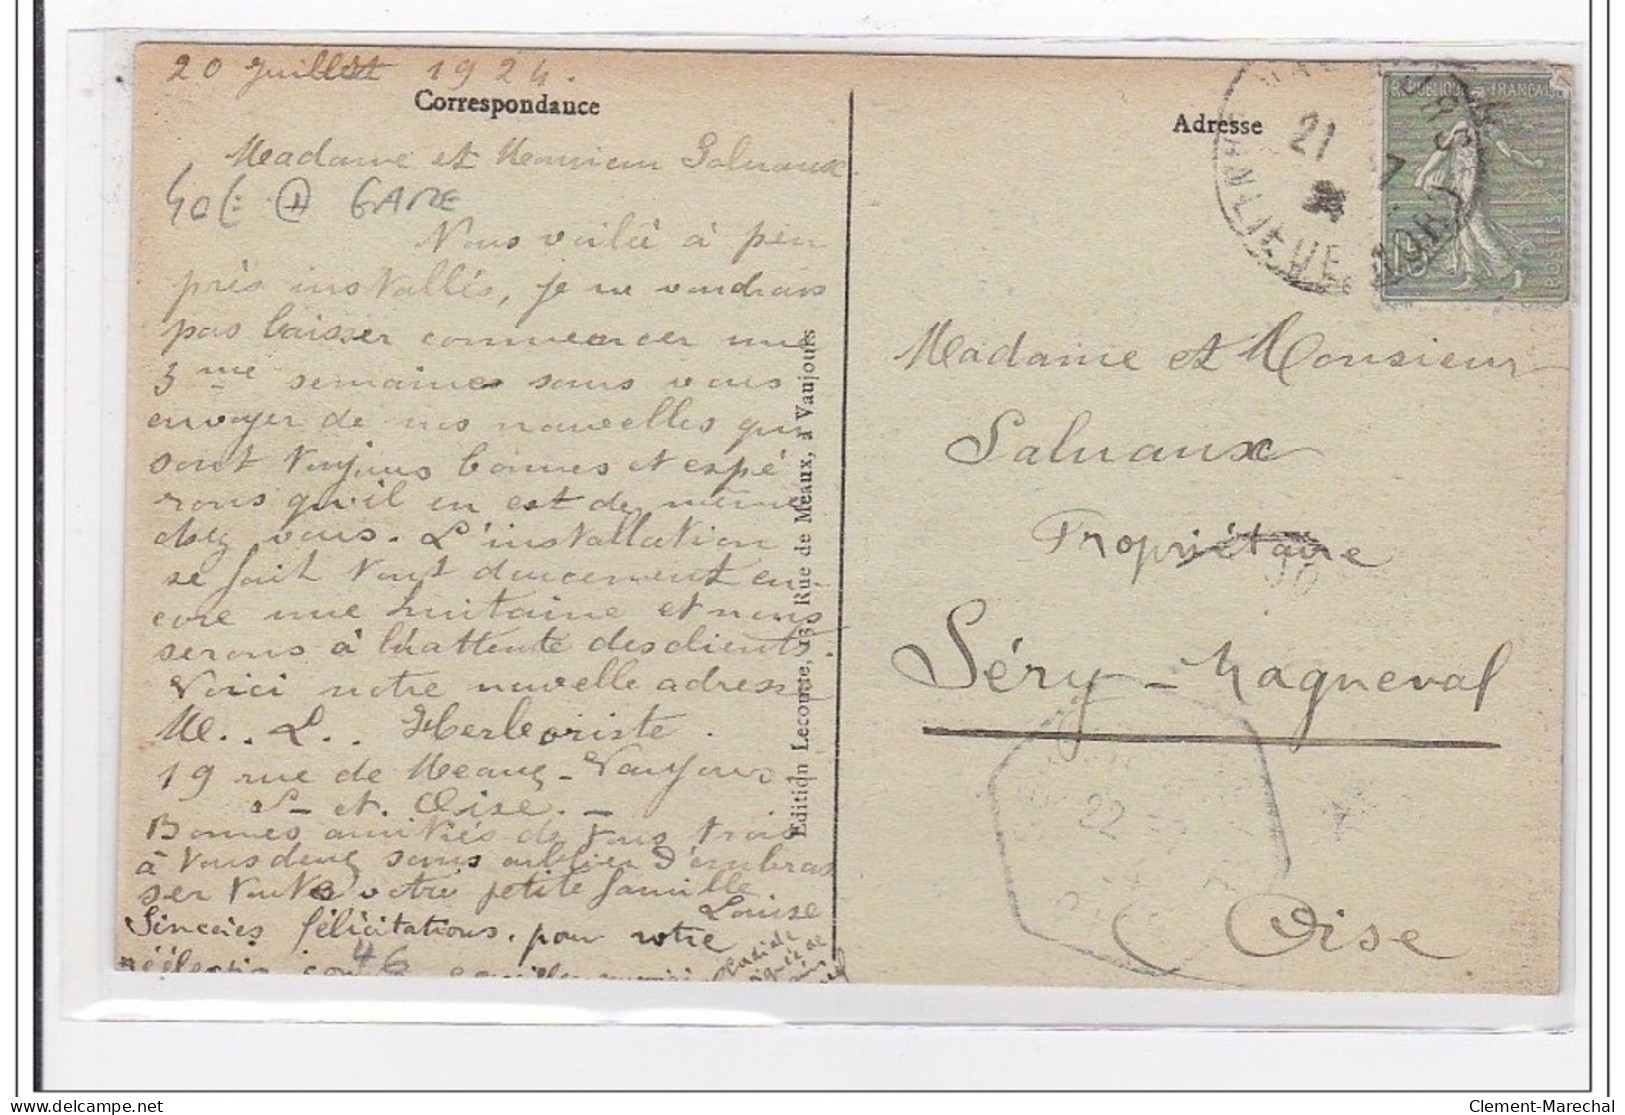 20 Juillet 1924.
Correspondance
Madame et Monsieur Saluaux.
40E GARE
Nous voilà à peu
près installés, je ne voudrais
pas laisser commencer une
3me semaine sans vous
envoyer de nos nouvelles qui
sont toujours bonnes et espé
rons qu'il en est de même
chez vous. L'installation
se fait tout doucement en-
core une huitaine et nous
serons à l'attente des clients.
Voici notre nouvelle adresse
M.. L.. Herboriste.
19 rue de Meaux - Vaujours
S- et. Oise. -
Bonnes amitiés de tous trois
à vous deux sans oublier d'embras
ser toute votre petite famille
Louise
Sincères félicitations. pour votre
46
réélection
Edition Lecomte, 13, Rue de Meaux, à Vaujours
Adresse
REPUBLIQUE FRANCAISE
POSTES
15
21 7
Madame et Monsieur
Saluaux
Propriétaire
Séry-Magneval
Oise
22
Clement-Marechal